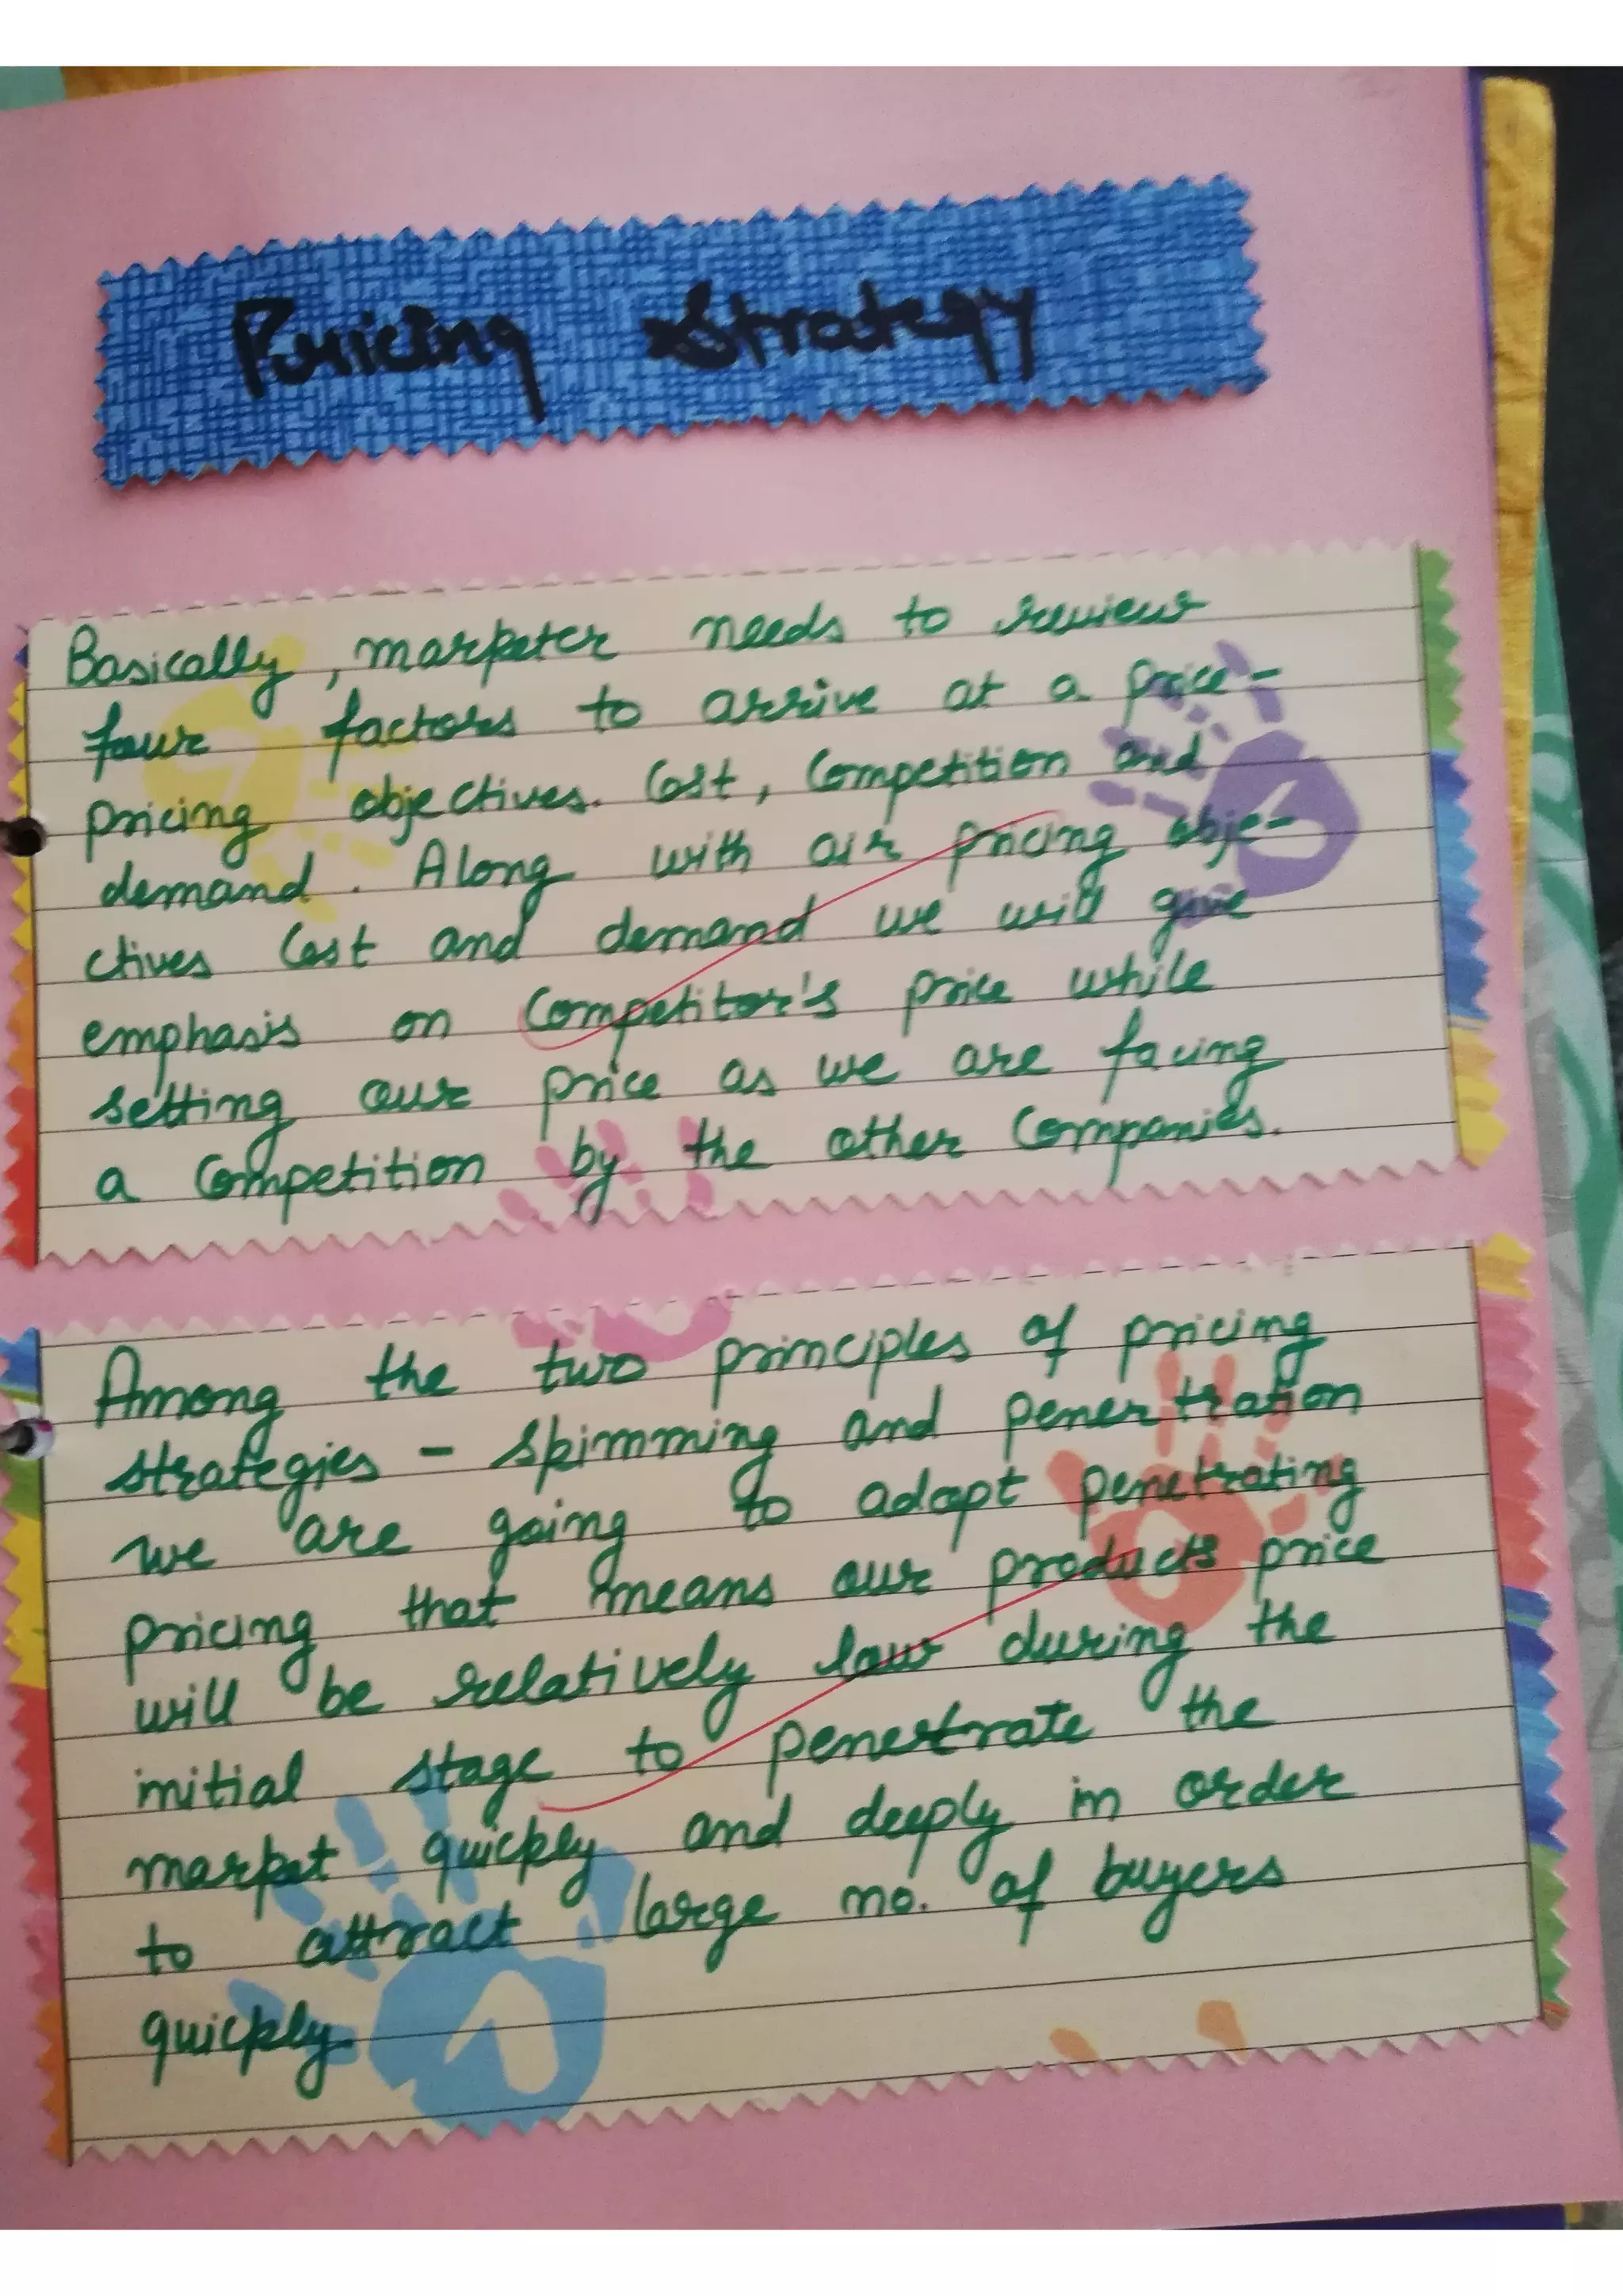 Pricing Strategy
Basically, marketer needs to review
four factors to arrive at a price-
pricing objectives. Cost, Competition and
demand. Along with air pricing obje-
ctives Cost and demand we will give
emphasis on Competitor's price while
setting our price as we are facing
a Competition by the other Companies.
Among the two principles of pricing
strategies - skimming and penertration
we are going to adapt penetrating
pricing that means our products price
will be relatively low during the
initial stage to penertrate the
market quickly and deeply in order
to attract large no. of buyers
quickly.